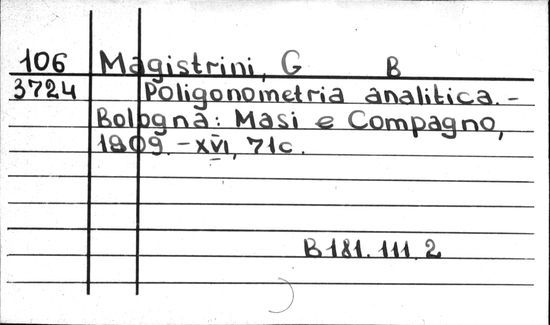 106 Magistrini, G B
3724 Poligonometria analitica. -
Bologna: Masi e Compagno,
1809. - XVI, 71c.
B 181. 111. 2